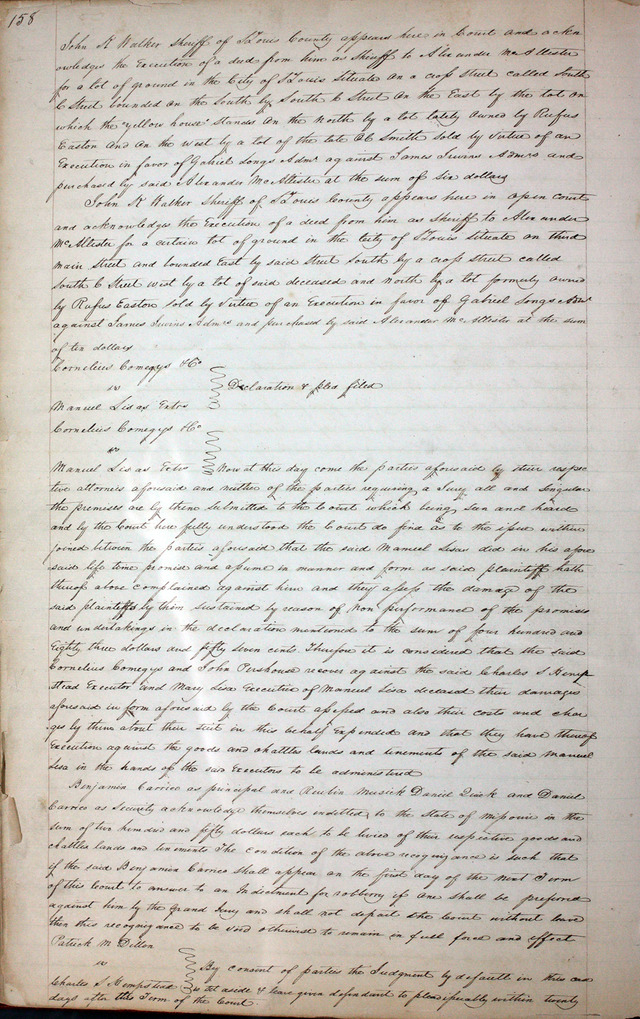 158
John K Walker Sheriff of St Louis County appears here in Court and ackn
owledges the Execution of a deed from him as Sheriff to Alexander McAllister
for a lot of ground in the City of St Louis Situate on a cross Street called South
C Street bounded on the South by South C Street on the East by the lot on
which the "yellow house" stands on the North by a lot lately owned by Rufus
Easton and on the west by a lot of the late Smith sold by virtue of an
Execution in favor of Gabriel Longs Admr against James Irwins Admrs and
purchased by said Alexander McAllister at the sum of six dollars
John K Walker Sheriff of St Louis County appears here in open court
and acknowledges the Execution of a deed from him as Sheriff to Alexander
McAllister for a certain lot of ground in the City of St Louis situate on third
main street and bounded East by said Street South by a cross street called
South C Street west by a lot of said deceased and North by a lot formerly owned
by Rufus Easton sold by virtue of an Execution in favor of Gabriel Longs Admr
against James Irwins Admrs and purchased by said Alexander McAllister at the sum
of ten dollars
Cornelius Comegys & Co
vs Declaration & plea filed
Manuel Lisas Extrs
Cornelius Comegys & Co
vs
Manuel Lisas Extrs Now at this day come the parties aforesaid by their respec
tive attorneis aforesaid and neither of the parties requiring a Jury all and Singular
the premises are by them submitted to the Court which being seen and heard
and by the Court here fully understood the Court do find as to the issue within
joined between the parties aforesaid that the said Manuel Lisa did in his afore
said life time promise and assume in manner and form as said plaintiff hath
thereof above complained against him and they assess the damage of the
said plaintiffs by them sustained by reason of non performance of the promises
and undertakings in the declaration mentioned to the sum of four hundred and
Eighty three dollars and fifty seven cents Therefore it is considered that the said
Cornelius Comegys and John Pershouse recover against the said Charles S Hemp
stead Executor and Mary Lisa Executrix of Manuel Lisa deceased their damages
aforesaid in form aforesaid by the Court assessed and also their costs and char
ges by them about their suit in this behalf Expended and that they have thereof
Execution against the goods and chattles lands and tenements of the said Manuel
Lisa in the hands of the said Executors to be administered
Benjamin Carrico as principal and Reubin Musick Daniel Quick and Daniel
Carrico as Security acknowledge themselves indebted to the State of Missouri in the
sum of two hundred and fifty dollars each to be levied of their respective goods and
chattles lands and tenements The condition of the above recognizance is such that
if the said Benjamin Carrico shall appear on the first day of the next Term
of this Court to answer to an Indictment for robbery if one shall be preferred
against him by the Grand Jury and shall not depart the Court without leave
then this recognizance to be void otherwise to remain in full force and effect
Patrick M Dillon
vs By consent of parties the Judgment by default in this case
Charles S Hempstead is set aside & leave given defendant to plead issuably within twenty
days after this Term of the Court